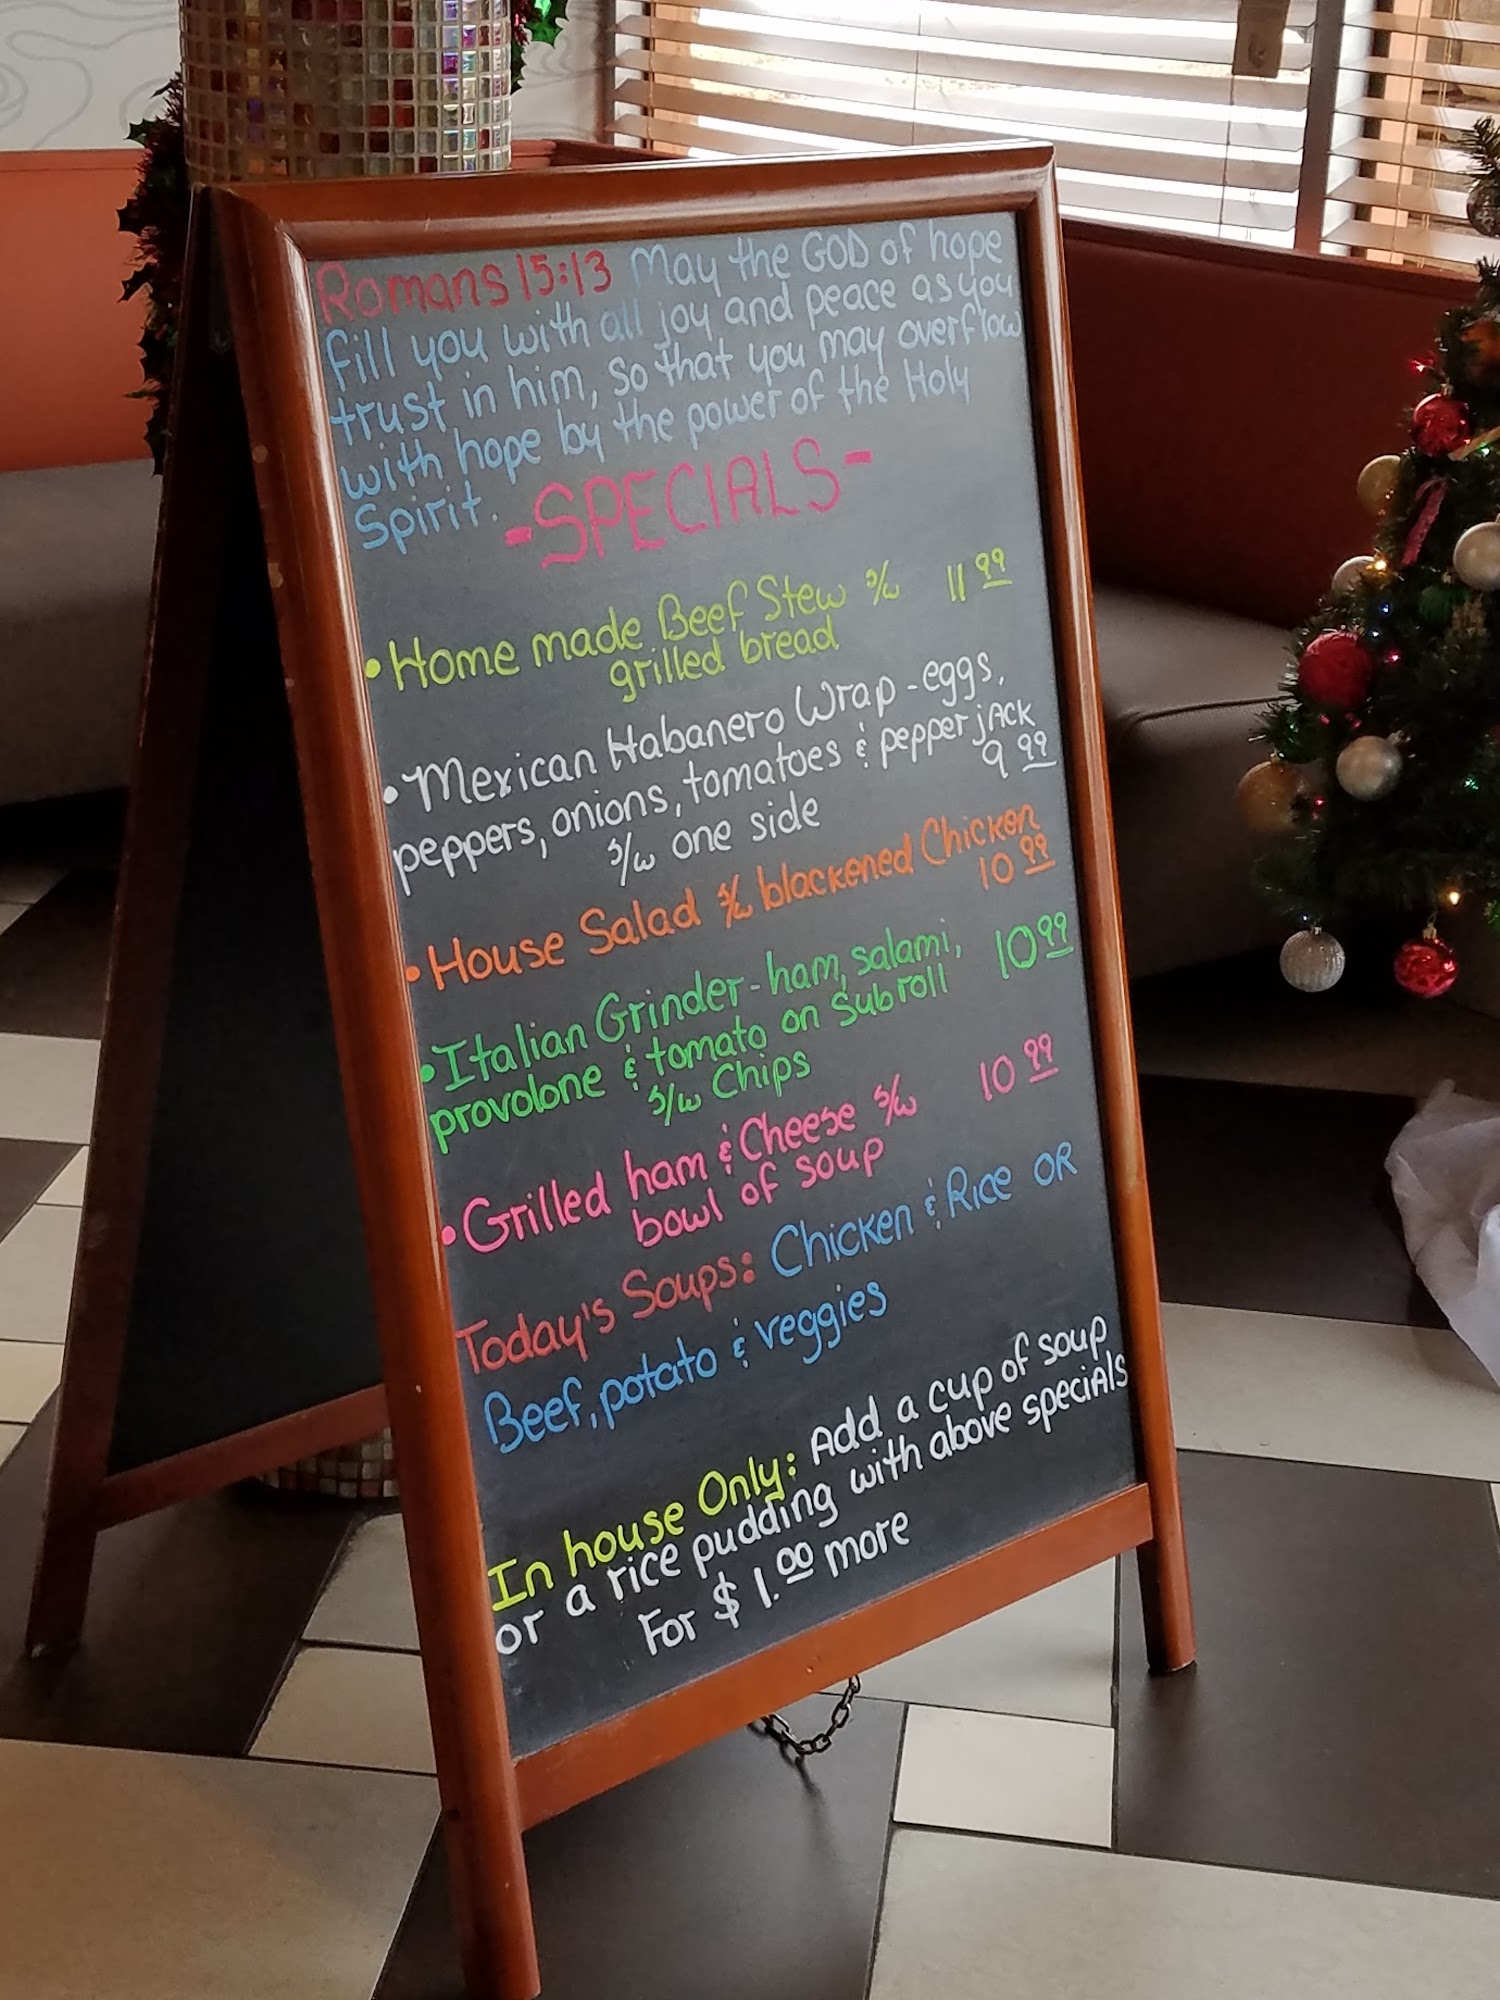 Romans 15:13 May the GOD of hope
fill you with all joy and peace as you
trust in him, so that you may overflow
with hope by the power of the Holy
Spirit.
-SPECIALS-
• Home made Beef Stew s/w 11 99
grilled bread
• Mexican Habanero Wrap - eggs,
peppers, onions, tomatoes & pepper jACK
s/w one side 9 99
• House Salad s/w blackened Chicken
10 99
• Italian Grinder - ham, salami, 10 99
provolone & tomato on Sub roll
s/w Chips
• Grilled ham & Cheese s/w 10 99
bowl of soup
Today's Soups: Chicken & Rice OR
Beef, potato & veggies
In house Only: Add a cup of soup
or a rice pudding with above speciAls
For $1.00 more